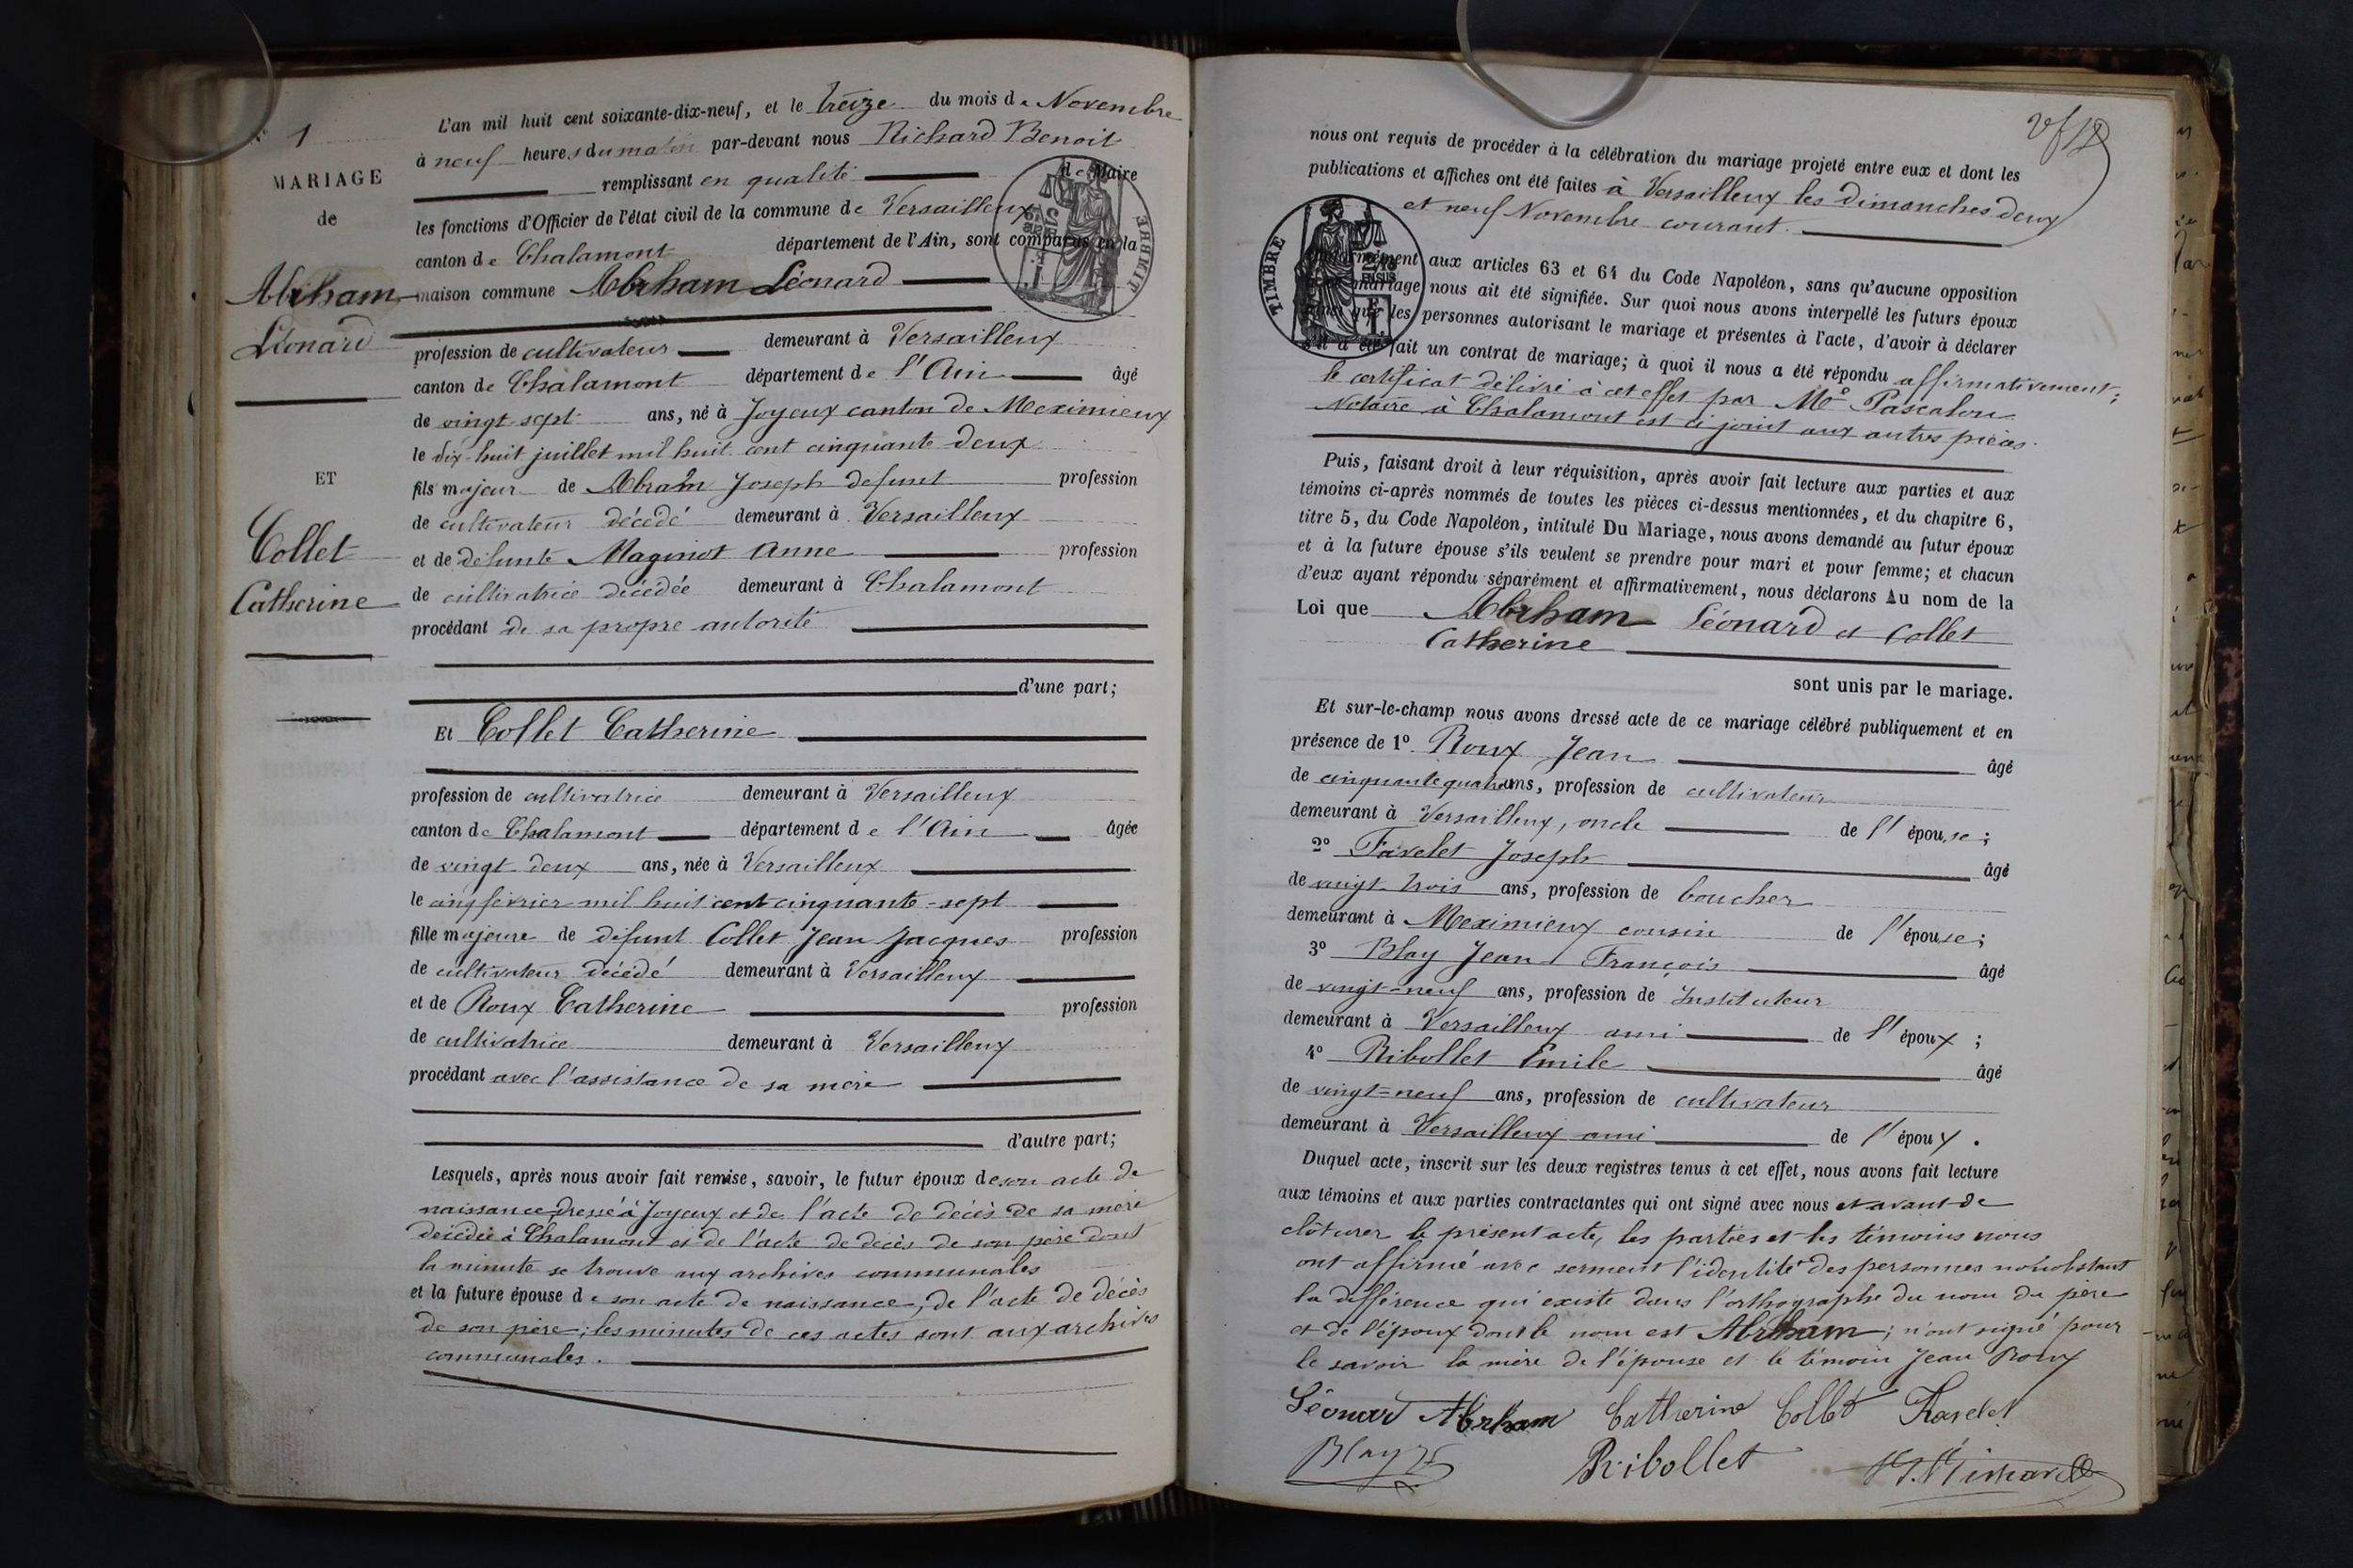 N° 1
MARIAGE
de
Abrham
Léonard
ET
Collet
Catherine
L'an mil huit cent soixante-dix-neuf, et le treize du mois de Novembre
à neuf heures du matin par-devant nous Richard Benoit
remplissant en qualité de Maire
les fonctions d'Officier de l'état civil de la commune de Versailleux
canton de Chalamont département de l'Ain, sont comparus en la
maison commune Abrham Léonard
profession de cultivateur demeurant à Versailleux
canton de Chalamont département de l'Ain âgé
de vingt-sept ans, né à Joyeux canton de Meximieux
le dix-huit juillet mil huit cent cinquante deux
fils majeur de Abram Joseph defunt profession
de cultivateur décédé demeurant à Versailleux
et de defunte Maginot Anne profession
de cultivatrice décédée demeurant à Chalamont
procédant de sa propre autorité
d'une part;
Et Collet Catherine
profession de cultivatrice demeurant à Versailleux
canton de Chalamont département de l'Ain âgée
de vingt-deux ans, née à Versailleux
le cinq février mil huit cent cinquante-sept
fille majeure de défunt Collet Jean Jacques profession
de cultivateur décédé demeurant à Versailleux
et de Roux Catherine profession
de cultivatrice demeurant à Versailleux
procédant avec l'assistance de sa mère
d'autre part;
Lesquels, après nous avoir fait remise, savoir, le futur époux de son acte de
naissance dressé à Joyeux et de l'acte de décès de sa mère
décédée à Chalamont et de l'acte de décès de son père dont
la minute se trouve aux archives communales
et la future épouse de son acte de naissance, de l'acte de décès
de son père; les minutes de ces actes sont aux archives
communales.
nous ont requis de procéder à la célébration du mariage projeté entre eux et dont les
publications et affiches ont été faites à Versailleux les dimanches deux
et neuf Novembre courant.
TIMBRE
conformément aux articles 63 et 64 du Code Napoléon, sans qu'aucune opposition
mariage nous ait été signifiée. Sur quoi nous avons interpellé les futurs époux
que les personnes autorisant le mariage et présentes à l'acte, d'avoir à déclarer
s'il a été fait un contrat de mariage; à quoi il nous a été répondu affirmativement;
le certificat délivré à cet effet par Me Pascalon
Notaire à Chalamont est ci joint aux autres pièces.
Puis, faisant droit à leur réquisition, après avoir fait lecture aux parties et aux
témoins ci-après nommés de toutes les pièces ci-dessus mentionnées, et du chapitre 6,
titre 5, du Code Napoléon, intitulé Du Mariage, nous avons demandé au futur époux
et à la future épouse s'ils veulent se prendre pour mari et pour femme; et chacun
d'eux ayant répondu séparément et affirmativement, nous déclarons Au nom de la
Loi que Abrham Léonard et Collet
Catherine
sont unis par le mariage.
Et sur-le-champ nous avons dressé acte de ce mariage célébré publiquement et en
présence de 1° Roux Jean âgé
de cinquante quatre ans, profession de cultivateur
demeurant à Versailleux, oncle de l'épouse;
2° Favelet Joseph âgé
de vingt-trois ans, profession de boucher
demeurant à Meximieux cousin de l'épouse;
3° Blay Jean François âgé
de vingt-neuf ans, profession de Instituteur
demeurant à Versailleux ami de l'époux;
4° Ribollet Emile âgé
de vingt-neuf ans, profession de cultivateur
demeurant à Versailleux ami de l'époux.
Duquel acte, inscrit sur les deux registres tenus à cet effet, nous avons fait lecture
aux témoins et aux parties contractantes qui ont signé avec nous et avant de
clôturer le présent acte, les parties et les témoins nous
ont affirmé avec serment l'identité des personnes nonobstant
la différence qui existe dans l'orthographe du nom du père
et de l'époux dont le nom est Abrham; n'ont signé pour
le savoir la mère de l'épouse et le témoin Jean Roux
Léonard Abrham Catherine Collet Favelet
Blay Ribollet Richard